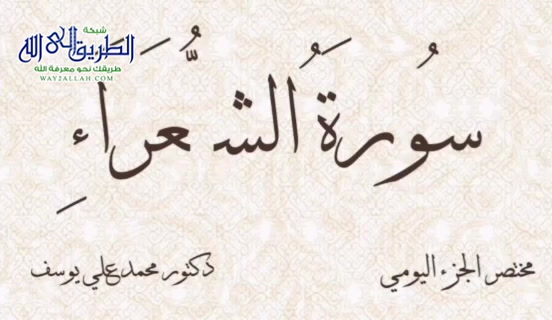 شبكة
الطريق إلى الله
طريقك نحو معرفة الله
WAY2ALLAH.COM
سُورَةُ الشُّعَرَاءِ
مختصر الجزء اليومي
دكتور محمد علي يوسف